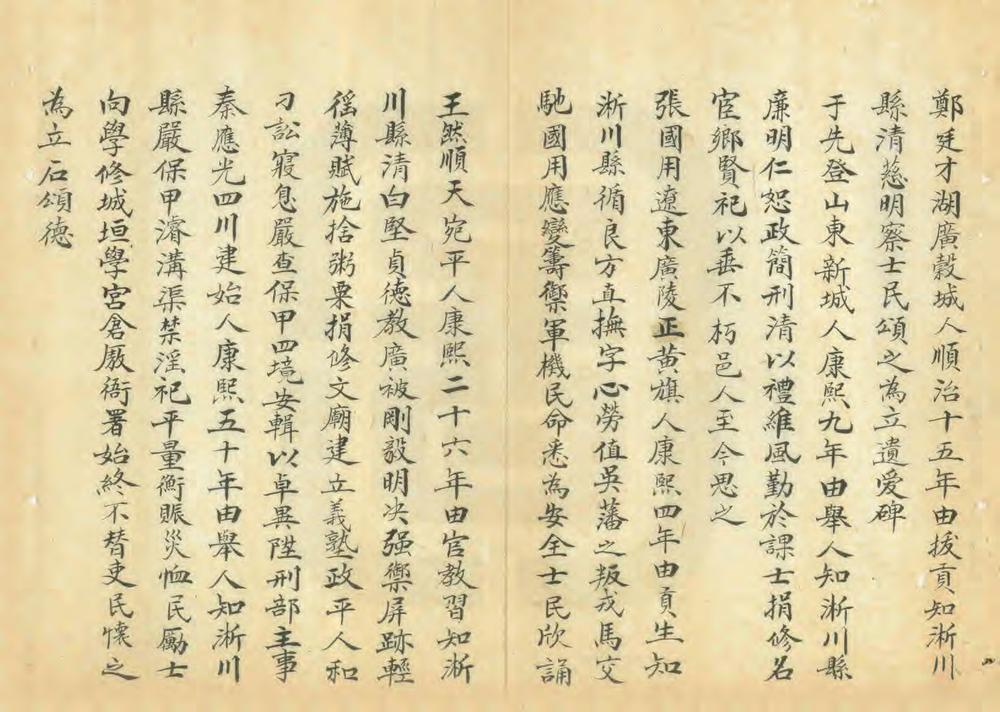 鄭廷才湖廣穀城人順治十五年由拔貢知淅川
縣清慈明察士民頌之為立遺愛碑
于先登山東新城人康熙九年由舉人知淅川縣
廉明仁恕政簡刑清以禮維風勤於課士捐修名
宦鄉賢祀以垂不朽邑人至今思之
張國用遼東廣陵正黃旗人康熙四年由貢生知
淅川縣循良方直撫字心勞值吳藩之叛戎馬交
馳國用應變籌禦軍機民命悉為安全士民欣誦
王然順天宛平人康熙二十六年由官教習知淅
川縣清白堅貞德教廣被剛毅明決强禦屏跡輕
徭薄賦施捨粥粟捐修文廟建立義塾政平人和
刁訟寢息嚴查保甲四境安輯以卓異陞刑部主事
秦應光四川建始人康熙五十年由舉人知淅川
縣嚴保甲濬溝渠禁淫祀平量衡賑災恤民勵士
向學修城垣學宮倉廒衙署始終不替吏民懷之
為立石頌德